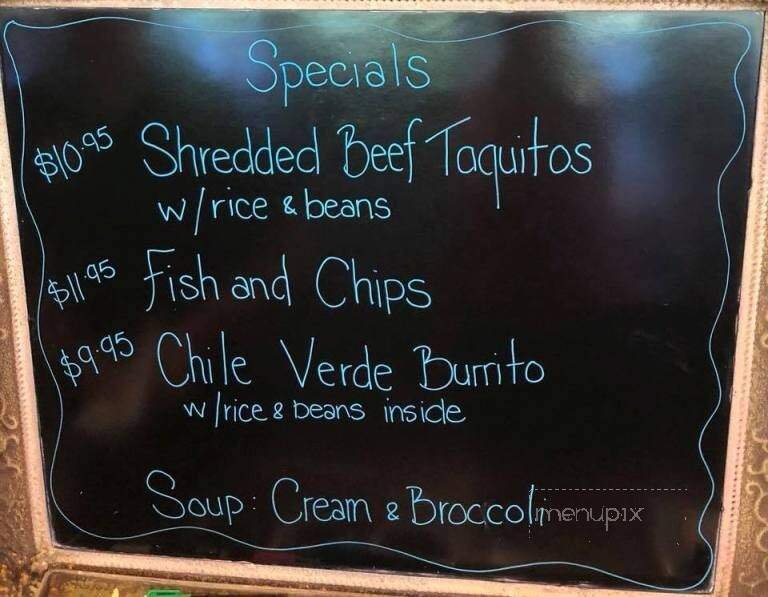 Specials
$10.95 Shredded Beef Taquitos
w/rice & beans
$11.95 Fish and Chips
$9.95 Chile Verde Burrito
w/rice & beans inside
Soup: Cream & Broccoli
menupix